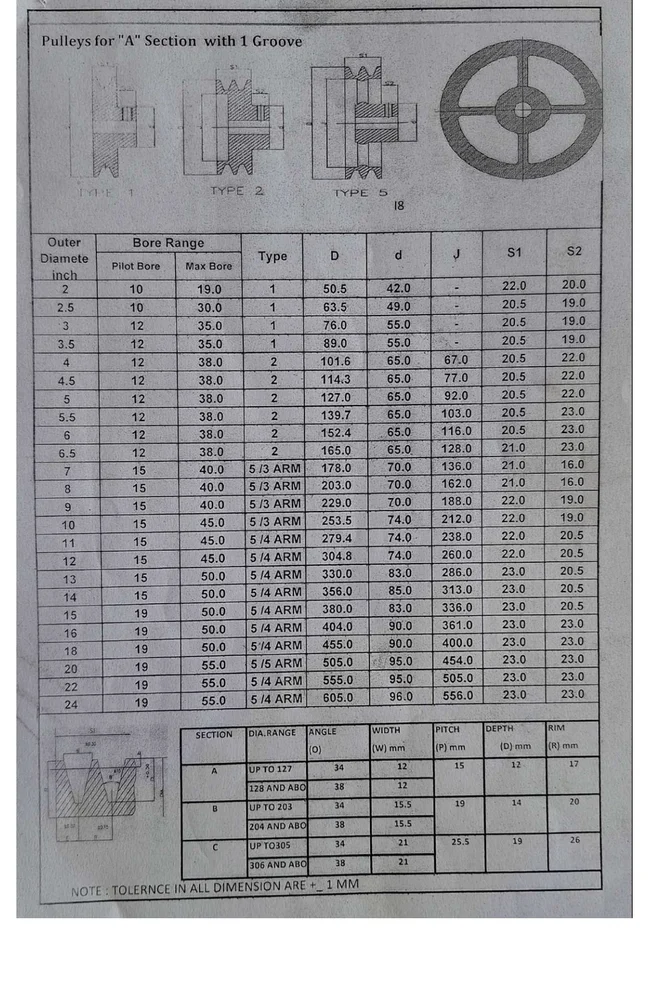 Pulleys for "A" Section with 1 Groove
S1 S1 S1
S2 S2
TYPE 1 TYPE 2 TYPE 5
18
Outer Diamete inch Bore Range Type D d J S1 S2
Pilot Bore Max Bore
2 10 19.0 1 50.5 42.0 - 22.0 20.0
2.5 10 30.0 1 63.5 49.0 - 20.5 19.0
3 12 35.0 1 76.0 55.0 - 20.5 19.0
3.5 12 35.0 1 89.0 55.0 - 20.5 19.0
4 12 38.0 2 101.6 65.0 67.0 20.5 22.0
4.5 12 38.0 2 114.3 65.0 77.0 20.5 22.0
5 12 38.0 2 127.0 65.0 92.0 20.5 22.0
5.5 12 38.0 2 139.7 65.0 103.0 20.5 23.0
6 12 38.0 2 152.4 65.0 116.0 20.5 23.0
6.5 12 38.0 2 165.0 65.0 128.0 21.0 23.0
7 15 40.0 5 /3 ARM 178.0 70.0 136.0 21.0 16.0
8 15 40.0 5 /3 ARM 203.0 70.0 162.0 21.0 16.0
9 15 40.0 5 /3 ARM 229.0 70.0 188.0 22.0 19.0
10 15 45.0 5 /3 ARM 253.5 74.0 212.0 22.0 19.0
11 15 45.0 5 /4 ARM 279.4 74.0 238.0 22.0 20.5
12 15 45.0 5 /4 ARM 304.8 74.0 260.0 22.0 20.5
13 15 50.0 5 /4 ARM 330.0 83.0 286.0 23.0 20.5
14 15 50.0 5 /4 ARM 356.0 85.0 313.0 23.0 20.5
15 19 50.0 5 /4 ARM 380.0 83.0 336.0 23.0 20.5
16 19 50.0 5 /4 ARM 404.0 90.0 361.0 23.0 23.0
18 19 50.0 5 /4 ARM 455.0 90.0 400.0 23.0 23.0
20 19 55.0 5 /5 ARM 505.0 95.0 454.0 23.0 23.0
22 19 55.0 5 /4 ARM 555.0 95.0 505.0 23.0 23.0
24 19 55.0 5 /4 ARM 605.0 96.0 556.0 23.0 23.0
SECTION DIA.RANGE ANGLE WIDTH PITCH DEPTH RIM
(O) (W) mm (P) mm (D) mm (R) mm
A UP TO 127 34 12 15 12 17
128 AND ABO 38 12
B UP TO 203 34 15.5 19 14 20
204 AND ABO 38 15.5
C UP TO305 34 21 25.5 19 26
306 AND ABO 38 21
NOTE : TOLERNCE IN ALL DIMENSION ARE +_ 1 MM